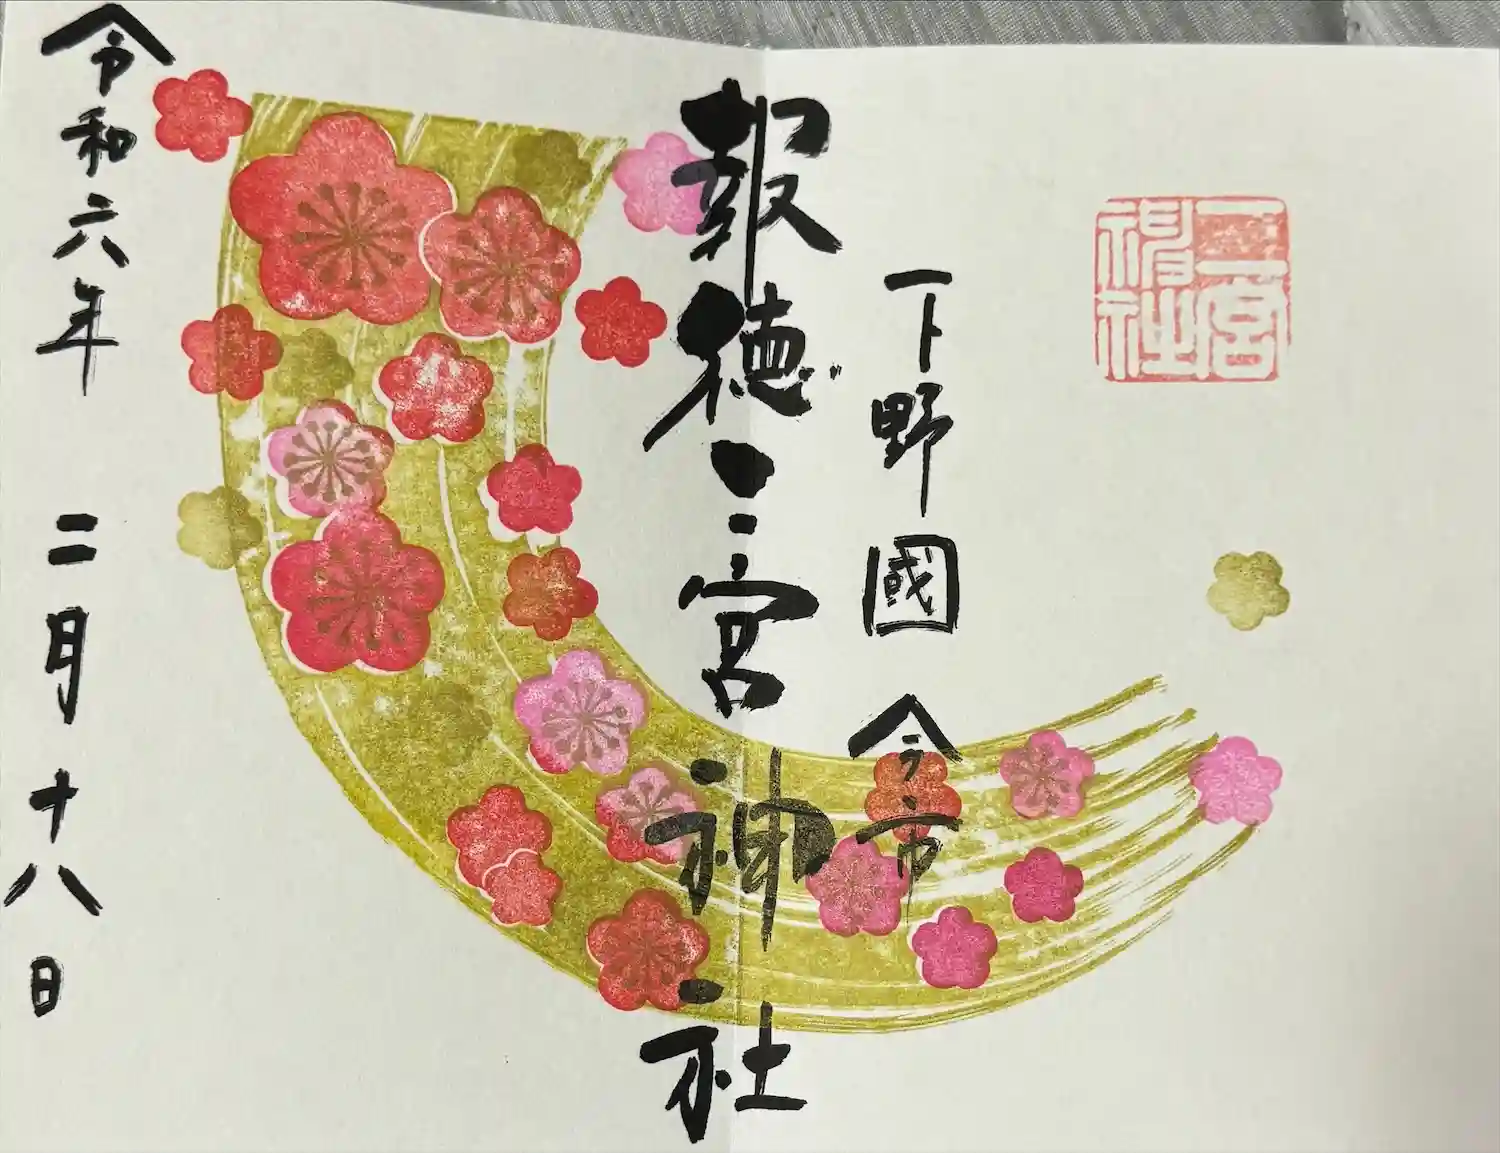 二宮
神社
下野國 今市
報徳二宮神社
令和六年 二月十八日